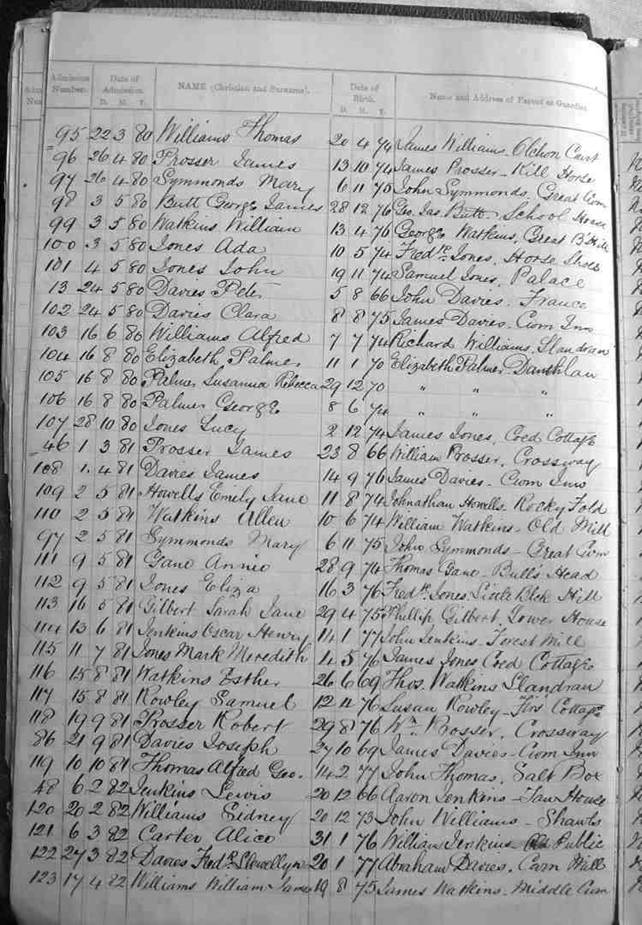 Admission Number. Date of Admission. NAME (Christian and Surname). Date of Birth. Name and Address of Parent or Guardian
D. M. Y. D. M. Y.
95 22 3 80 Williams Thomas 20 4 74 James Williams, Olchon Court
96 26 4 80 Prosser James 13 10 74 James Prosser - Kill Horse
97 26 4 80 Symmonds Mary 6 11 75 John Symmonds, Great Cwm
98 3 5 80 Butt George James 28 12 76 Geo. Jas Butt - School House
99 3 5 80 Watkins William 13 4 76 George Watkins, Great B. Hill
100 3 5 80 Jones Ada 10 5 74 Fredk. Jones, Horse Shoes
101 4 5 80 Jones John 19 11 74 Samuel Jones, Palace
13 24 5 80 Davies Peter 5 8 66 John Davies - France
102 24 5 80 Davies Clara 8 8 75 James Davies - Cwm Inn
103 16 6 80 Williams Alfred 7 7 74 Richard Williams, Llandraw
104 16 8 80 Elizabeth Palmer 11 1 70 Elizabeth Palmer
105 16 8 80 Palmer Susanna Rebecca 29 12 70 " " "
106 16 8 80 Palmer George 8 6 74 " " "
107 28 10 80 Jones Lucy 2 12 74 James Jones, Coed Cottage
46 1 3 81 Prosser James 23 8 66 William Prosser, Crossway
108 1 4 81 Davies James 14 9 76 James Davies - Cwm Inn
109 2 5 81 Howells Emely Jane 11 8 74 Johnathan Howells, Rocky Fold
110 2 5 81 Watkins Allen 10 6 74 William Watkins - Old Mill
97 2 5 81 Symmonds Mary 6 11 75 John Symmonds - Great Cwm
111 9 5 81 Gane Annie 28 9 74 Thomas Gane - Bull's Head
112 9 5 81 Jones Eliza 16 3 76 Fredk. Jones Little Black Hill
113 16 5 81 Gilbert Sarah Jane 29 4 75 Phillip Gilbert, Lower House
114 13 6 81 Jenkins Oscar Henry 14 1 77 John Jenkins Forest Mill
115 11 7 81 Jones Mark Meredith 14 5 76 James Jones Coed Cottage
116 15 8 81 Watkins Esther 26 6 69 Thos. Watkins Llandraw
117 15 8 81 Rowley Samuel 12 4 76 Susan Rowley - Firs Cottage
118 19 9 81 Prosser Robert 29 8 76 Wm. Prosser, Crossway
86 21 9 81 Davies Joseph 27 10 69 James Davies - Cwm Inn
119 10 10 81 Thomas Alfred Geo. 14 2 77 John Thomas, Salt Box
48 6 2 82 Jenkins Lewis 20 12 66 Aaron Jenkins - Tan House
120 20 2 82 Williams Sidney 20 12 73 John Williams - Shawls
121 6 3 82 Carter Alice 31 1 76 William Jenkins Public
122 27 3 82 Davies Fredk. Llewellyn 20 1 77 Abraham Davies, Cwm Mill
123 17 4 82 Williams William James 19 8 75 James Watkins - Middle Cwm